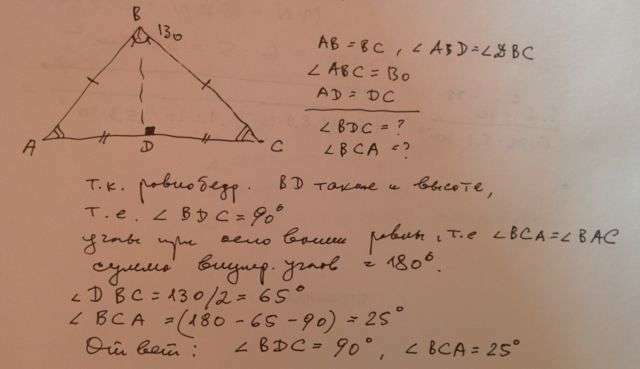 B
130
A
D
C
AB = BC, ∠ABD = ∠DBC
∠ABC = 130
AD = DC
∠BDC = ?
∠BCA = ?
т.к. равнобедр. BD также и высота,
т.е. ∠BDC = 90°
углы при основании равны, т.е ∠BCA = ∠BAC
сумма внутр. углов = 180°.
∠DBC = 130/2 = 65°
∠BCA = (180 - 65 - 90) = 25°
Ответ: ∠BDC = 90°, ∠BCA = 25°